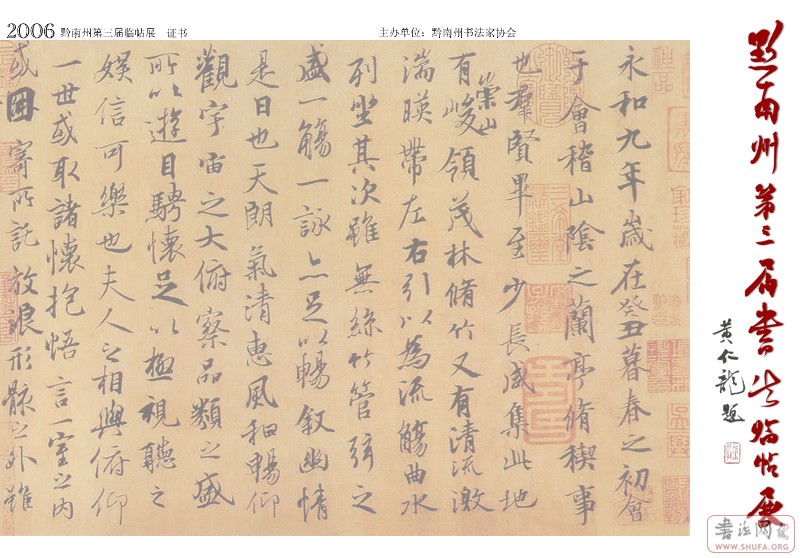 2006 黔南州第三届临帖展 证书
主办单位：黔南州书法家协会
黔南州第三届书法临帖展
黄仁龙题
永和九年歲在癸丑暮春之初會
于會稽山陰之蘭亭脩稧事
也羣賢畢至少長咸集此地
有崇山峻領茂林脩竹又有清流激
湍暎帶左右引以為流觴曲水
列坐其次雖無絲竹管弦之
盛一觴一詠亦足以暢叙幽情
是日也天朗氣清惠風和暢仰
觀宇宙之大俯察品類之盛
所以遊目騁懷足以極視聽之
娛信可樂也夫人之相與俯仰
一世或取諸懷抱悟言一室之內
或因寄所託放浪形骸之外雖
書法网
WWW.SHUFA.ORG